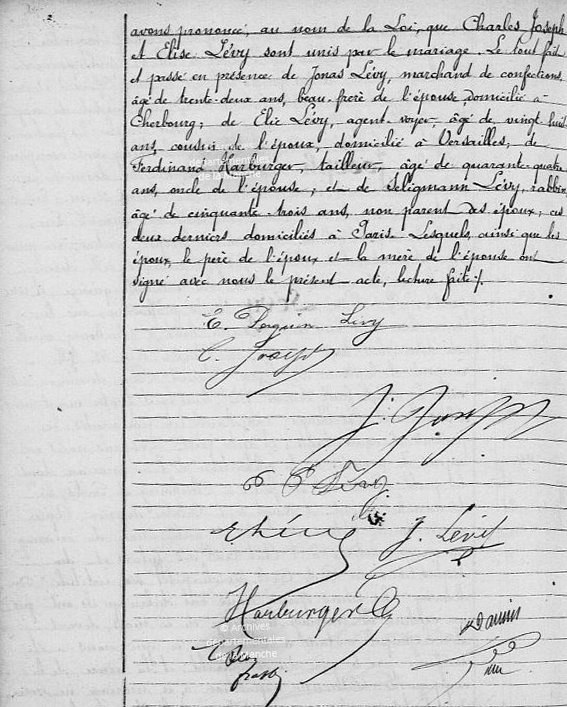 avons prononcé, au nom de la Loi, que Charles Joseph
et Elise Lévy sont unis par le mariage. Le tout fait
et passé en présence de Jonas Lévy, marchand de confections,
âgé de trente-deux ans, beau-frère de l'épouse domicilié à
Cherbourg; de Elie Lévy, agent-voyer, âgé de vingt huit
ans, cousin de l'époux, domicilié à Versailles; de
Ferdinand Harburger, tailleur, âgé de quarante-quatre
ans, oncle de l'épouse; et de Séligmann Lévy, rabbin,
âgé de cinquante-trois ans, non parent des époux; ces
deux derniers domiciliés à Paris. Lesquels, ainsi que les
époux, le père de l'époux et la mère de l'épouse ont
signé avec nous le présent acte, lecture faite ./.
E. Lévy
C. Joseph
J. Joseph
J. Lévy
Harburger
© Archives
départementales
de la Manche